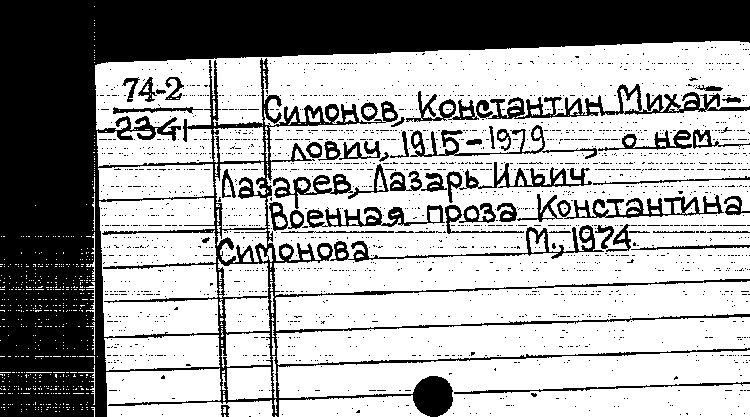 74-2
2341
Симонов, Константин Михай-
лович, 1915-1979 , о нем.
Лазарев, Лазарь Ильич.
Военная проза Константина
Симонова. М., 1974.